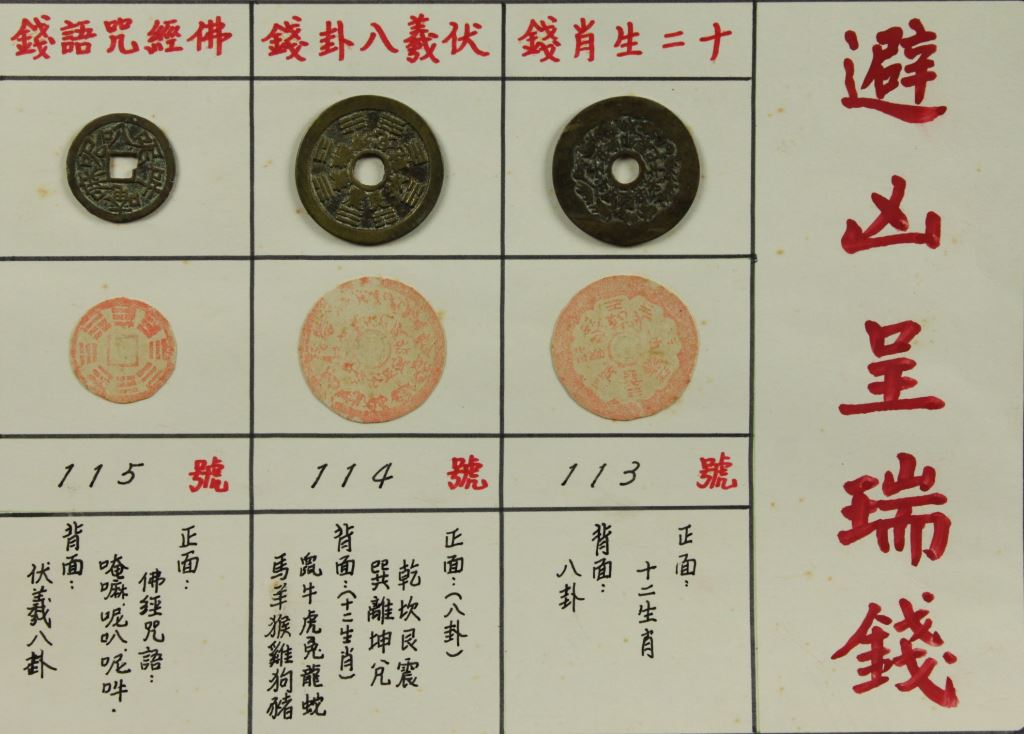 避凶呈瑞錢
十二生肖錢
伏羲八卦錢
佛經咒語錢
113 號
114 號
115 號
正面：
十二生肖
背面：
八卦
正面：（八卦）
乾坎艮震
巽離坤兌
背面：（十二生肖）
鼠牛虎兔龍蛇
馬羊猴雞狗豬
正面：
佛經咒語：
唵嘛呢叭呢吽．
背面：
伏羲八卦